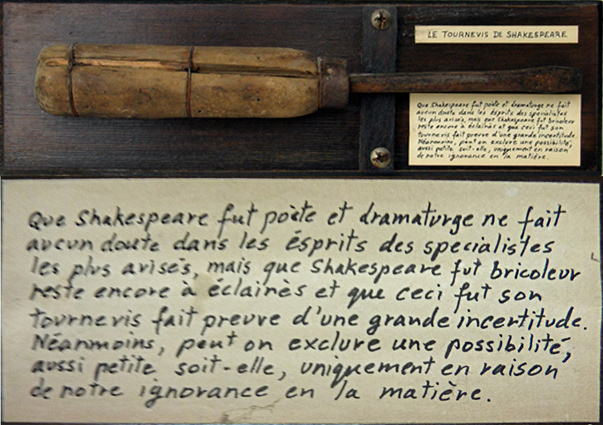 LE TOURNEVIS DE SHAKESPEARE
Que Shakespeare fut poète et dramaturge ne fait
aucun doute dans les ésprits des specialistes
les plus avisés, mais que Shakespeare fut bricoleur
reste encore à éclairès et que ceci fut son
tournevis fait preuve d'une grande incertitude.
Néanmoins, peut on exclure une possibilité,
aussi petite soit-elle, uniquement en raison
de notre ignorance en la matière.
Que Shakespeare fut poète et dramaturge ne fait
aucun doute dans les ésprits des specialistes
les plus avisés, mais que Shakespeare fut bricoleur
reste encore à éclairès et que ceci fut son
tournevis fait preuve d'une grande incertitude.
Néanmoins, peut on exclure une possibilité,
aussi petite soit-elle, uniquement en raison
de notre ignorance en la matière.